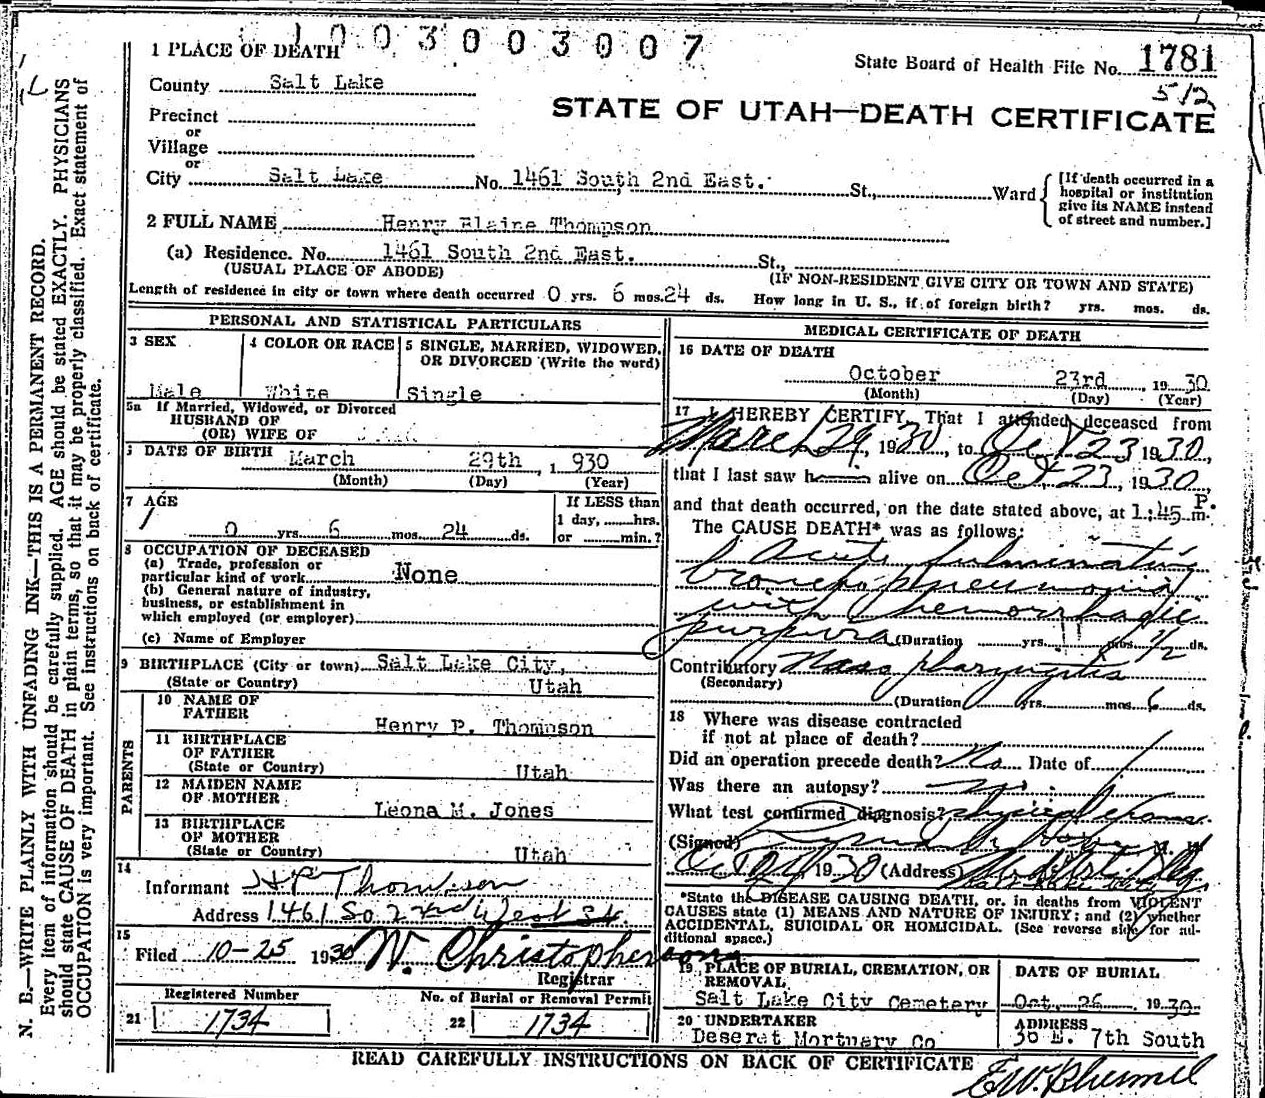 1003003007
1 PLACE OF DEATH
State Board of Health File No. 1781
512
County Salt Lake
STATE OF UTAH—DEATH CERTIFICATE
Precinct
or
Village
or
City Salt Lake No. 1461 South 2nd East. St., Ward
[If death occurred in a
hospital or institution
give its NAME instead
of street and number.]
2 FULL NAME Henry Blaine Thompson
(a) Residence. No. 1461 South 2nd East. St.,
(USUAL PLACE OF ABODE) (IF NON-RESIDENT GIVE CITY OR TOWN AND STATE)
Length of residence in city or town where death occurred 0 yrs. 6 mos. 24 ds. How long in U. S., if of foreign birth? yrs. mos. ds.
PERSONAL AND STATISTICAL PARTICULARS
3 SEX
Male
4 COLOR OR RACE
White
5 SINGLE, MARRIED, WIDOWED,
OR DIVORCED (Write the word)
Single
5a If Married, Widowed, or Divorced
HUSBAND OF
(OR) WIFE OF
6 DATE OF BIRTH March 29th, 1930
(Month) (Day) (Year)
7 AGE
0 yrs. 6 mos. 24 ds.
If LESS than
1 day, hrs.
or min.?
8 OCCUPATION OF DECEASED
(a) Trade, profession or
particular kind of work None
(b) General nature of industry,
business, or establishment in
which employed (or employer)
(c) Name of Employer
9 BIRTHPLACE (City or town) Salt Lake City,
(State or Country) Utah
PARENTS
10 NAME OF
FATHER Henry P. Thompson
11 BIRTHPLACE
OF FATHER
(State or Country) Utah
12 MAIDEN NAME
OF MOTHER Leona M. Jones
13 BIRTHPLACE
OF MOTHER
(State or Country) Utah
14
Informant H P Thompson
Address 1461 So 2nd
15
Filed 10-25 1930 W. Christopherson
Registrar
Registered Number
21 1734
No. of Burial or Removal Permit
22 1734
MEDICAL CERTIFICATE OF DEATH
16 DATE OF DEATH
October 23rd, 1930
(Month) (Day) (Year)
17 I HEREBY CERTIFY, That I attended deceased from
March 29, 1930, to Oct 23 1930,
that I last saw h alive on Oct 23, 1930,
and that death occurred, on the date stated above, at 1:45 P. m.
The CAUSE DEATH* was as follows:
Acute fulminating
bronchopneumonia
with hemorrhagic
purpura (Duration yrs. mos. 1/2 ds.
Contributory Nasopharyngitis
(Secondary)
(Duration yrs. mos. 6 ds.
18 Where was disease contracted
if not at place of death?
Did an operation precede death? No Date of
Was there an autopsy? no
What test confirmed diagnosis? physical exam.
(Signed) M. D.
Oct 24 1930 (Address)
Salt Lake City
*State the DISEASE CAUSING DEATH, or, in deaths from VIOLENT
CAUSES state (1) MEANS AND NATURE OF INJURY; and (2) whether
ACCIDENTAL, SUICIDAL OR HOMICIDAL. (See reverse side for ad-
ditional space.)
19 PLACE OF BURIAL, CREMATION, OR
REMOVAL
Salt Lake City Cemetery
DATE OF BURIAL
Oct. 26, 1930
20 UNDERTAKER
Deseret Mortuary Co
ADDRESS
36 E. 7th South
READ CAREFULLY INSTRUCTIONS ON BACK OF CERTIFICATE
N. B.—WRITE PLAINLY WITH UNFADING INK—THIS IS A PERMANENT RECORD.
Every item of information should be carefully supplied. AGE should be stated EXACTLY. PHYSICIANS
should state CAUSE OF DEATH in plain terms, so that it may be properly classified. Exact statement of
OCCUPATION is very important. See instructions on back of certificate.